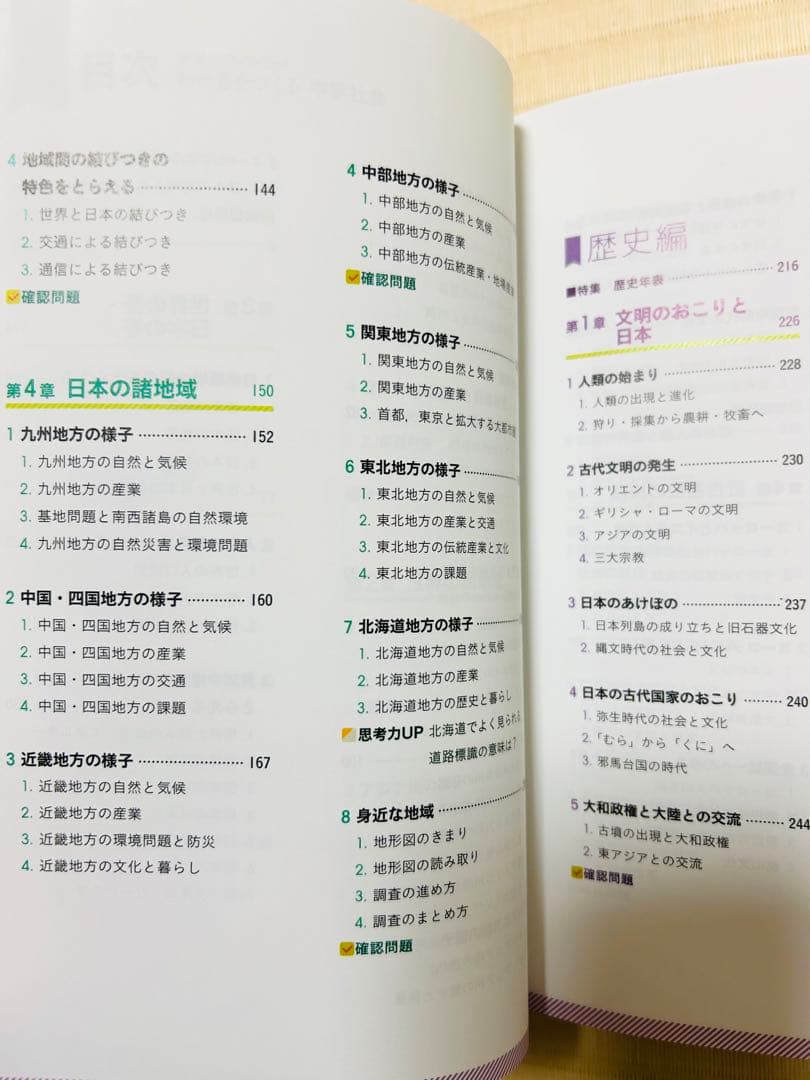 4 地域間の結びつきの
特色をとらえる …………………… 144
1. 世界と日本の結びつき
2. 交通による結びつき
3. 通信による結びつき
確認問題
第4章 日本の諸地域 150
1 九州地方の様子 …………………… 152
1. 九州地方の自然と気候
2. 九州地方の産業
3. 基地問題と南西諸島の自然環境
4. 九州地方の自然災害と環境問題
2 中国・四国地方の様子 ………… 160
1. 中国・四国地方の自然と気候
2. 中国・四国地方の産業
3. 中国・四国地方の交通
4. 中国・四国地方の課題
3 近畿地方の様子 …………………… 167
1. 近畿地方の自然と気候
2. 近畿地方の産業
3. 近畿地方の環境問題と防災
4. 近畿地方の文化と暮らし
4 中部地方の様子 ……………
1. 中部地方の自然と気候
2. 中部地方の産業
3. 中部地方の伝統産業・地場産業
確認問題
5 関東地方の様子 ……………
1. 関東地方の自然と気候
2. 関東地方の産業
3. 首都,東京と拡大する大都市圏
6 東北地方の様子 ……………
1. 東北地方の自然と気候
2. 東北地方の産業と交通
3. 東北地方の伝統産業と文化
4. 東北地方の課題
7 北海道地方の様子 …………
1. 北海道地方の自然と気候
2. 北海道地方の産業
3. 北海道地方の歴史と暮らし
思考力UP 北海道でよく見られる
道路標識の意味は?
8 身近な地域 …………………
1. 地形図のきまり
2. 地形図の読み取り
3. 調査の進め方
4. 調査のまとめ方
確認問題
歴史編
■特集 歴史年表 …………………… 216
第1章 文明のおこりと
日本 226
1 人類の始まり …………………… 228
1. 人類の出現と進化
2. 狩り・採集から農耕・牧畜へ
2 古代文明の発生 ………………… 230
1. オリエントの文明
2. ギリシャ・ローマの文明
3. アジアの文明
4. 三大宗教
3 日本のあけぼの ………………… 237
1. 日本列島の成り立ちと旧石器文化
2. 縄文時代の社会と文化
4 日本の古代国家のおこり ……… 240
1. 弥生時代の社会と文化
2.「むら」から「くに」へ
3. 邪馬台国の時代
5 大和政権と大陸との交流 ……… 244
1. 古墳の出現と大和政権
2. 東アジアとの交流
確認問題